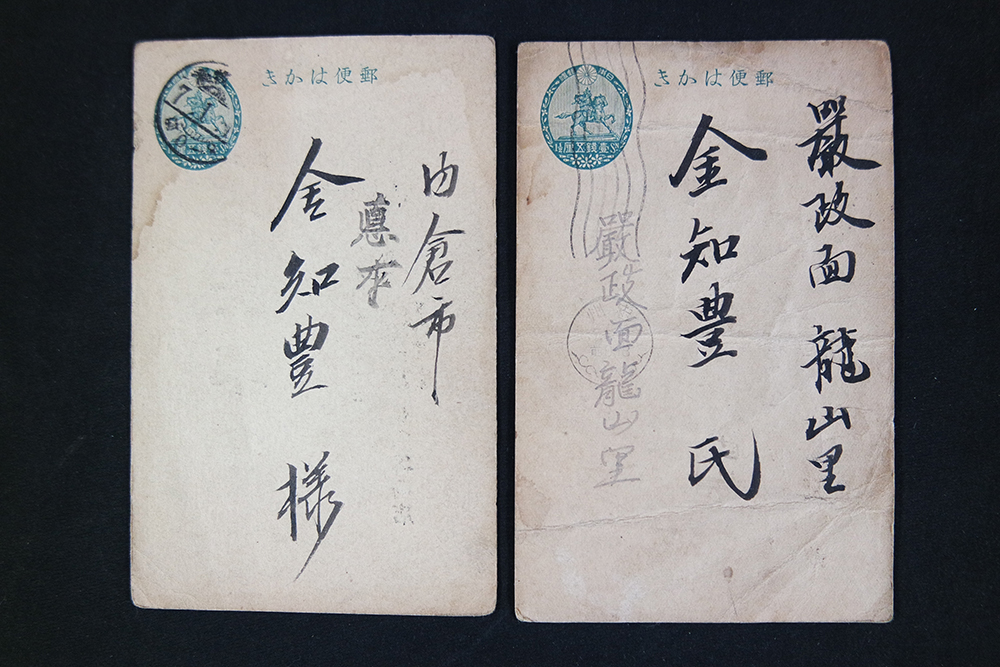 郵便はかき
内倉市
金知豊 様
郵便はかき
壹錢五厘
嚴政面 龍山里
金知豊 氏
嚴政面龍山里